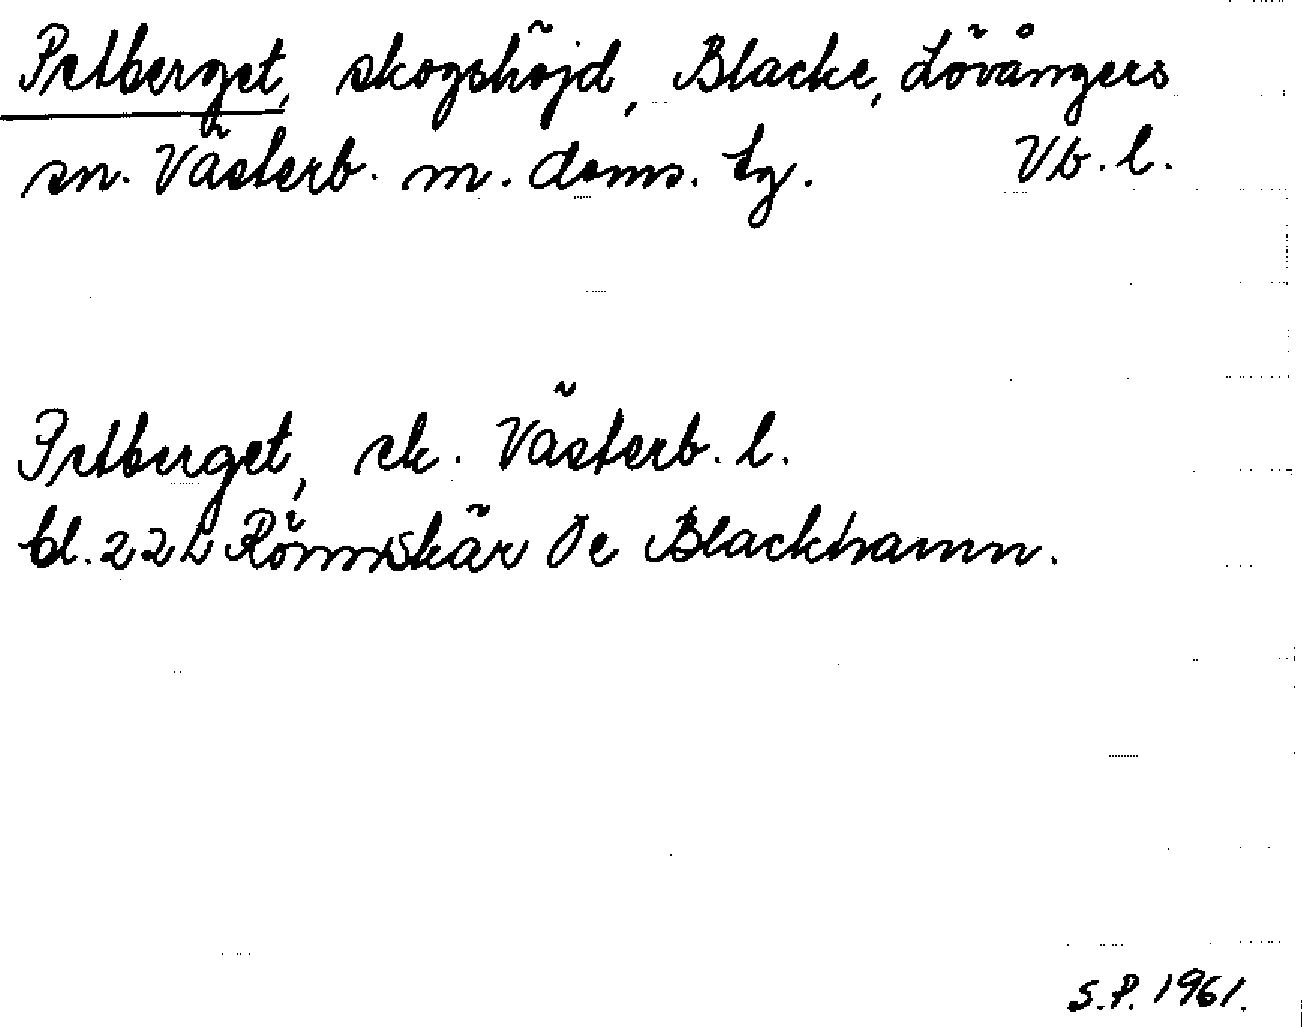 Petberget, skogshöjd, Blacke, Lövångers
sn. Västerb. m. doms. tg. Vb. l.
Petberget, ek. Västerb. l.
bl. 22 L Rönnskär Öe Blackhamn.
S.P. 1961.